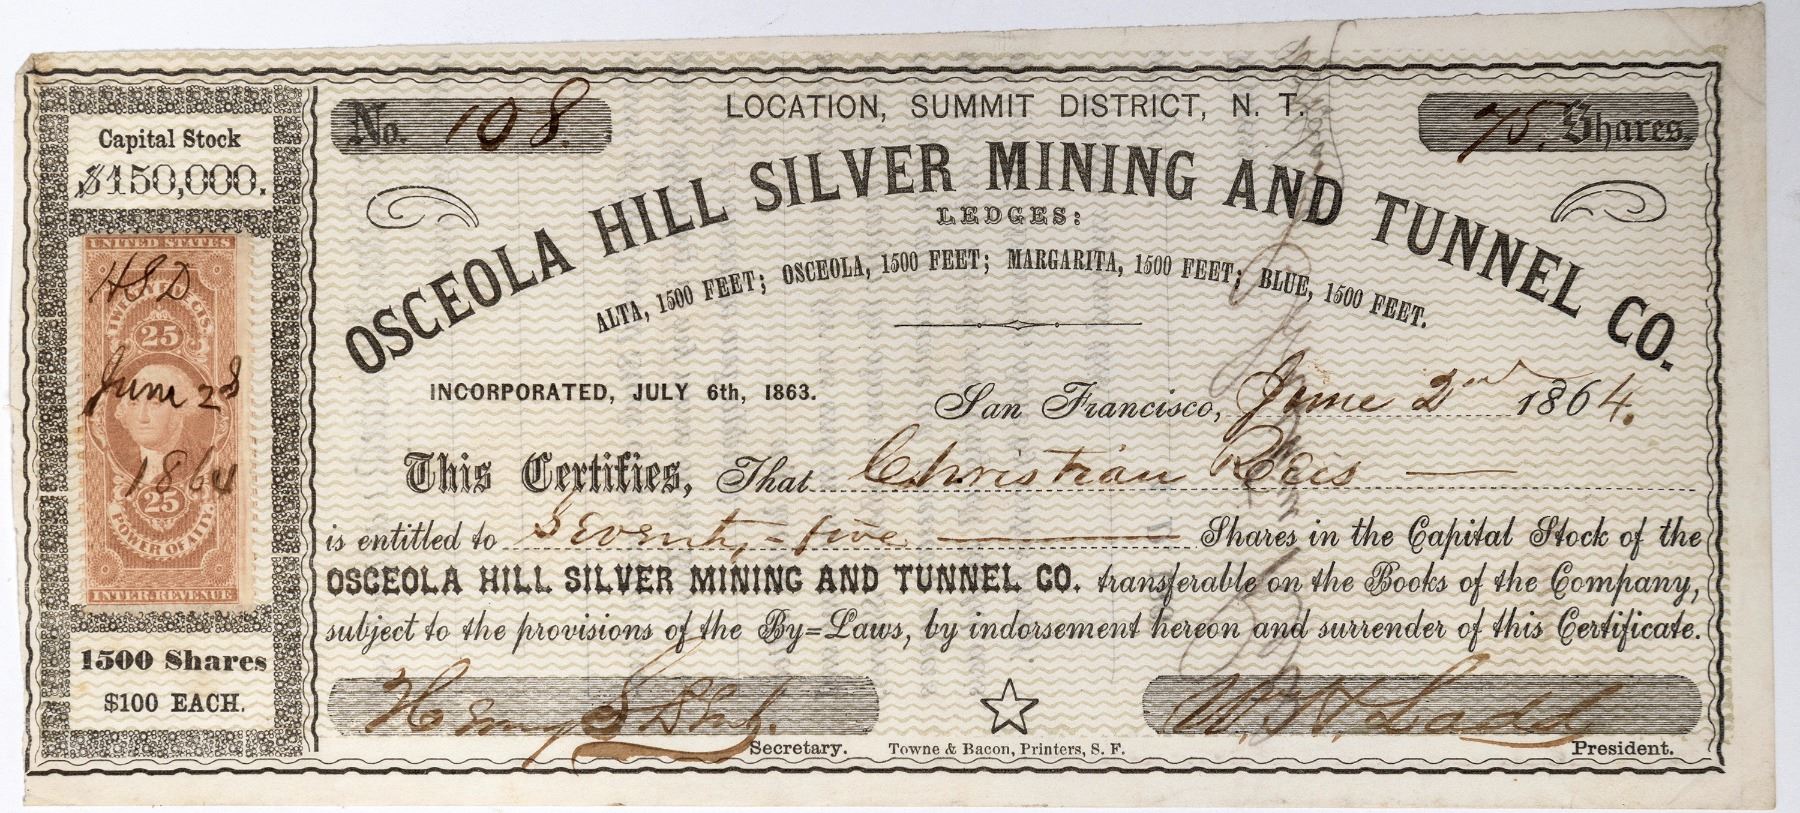 Capital Stock
$150,000.
UNITED STATES
HSD
TWENTY FIVE CTS.
25
June 2d
1864
25
POWER OF ATTY.
INTER. REVENUE
1500 Shares
$100 EACH.
No. 108.
LOCATION, SUMMIT DISTRICT, N. T.
75. Shares.
OSCEOLA HILL SILVER MINING AND TUNNEL CO.
LEDGES:
ALTA, 1500 FEET; OSCEOLA, 1500 FEET; MARGARITA, 1500 FEET; BLUE, 1500 FEET.
INCORPORATED, JULY 6th, 1863.
San Francisco, June 2nd 1864.
This Certifies, That Christian Reis
is entitled to Seventy-five Shares in the Capital Stock of the
OSCEOLA HILL SILVER MINING AND TUNNEL CO. transferable on the Books of the Company,
subject to the provisions of the By=Laws, by indorsement hereon and surrender of this Certificate.
Henry S Secretary.
Towne & Bacon, Printers, S. F.
W. H. Ladd President.